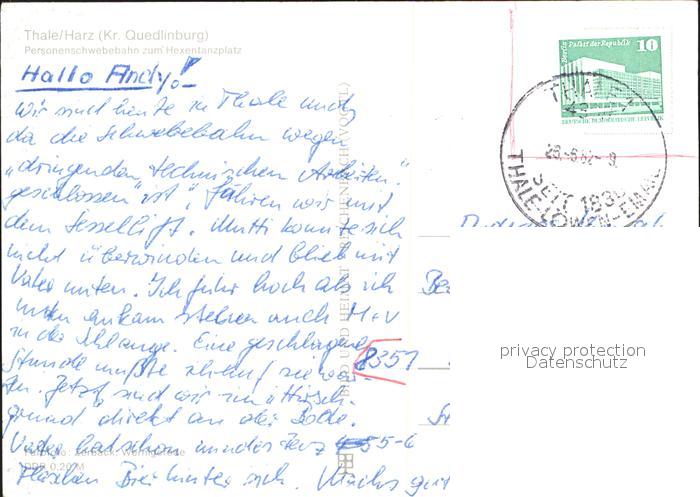 Thale/Harz (Kr. Quedlinburg)
Personenschwebebahn zum Hexentanzplatz
Hallo Andy!
Wir sind heute in Thale und
da die Schwebebahn wegen
"dringenden technischen Arbeiten"
geschlossen ist, fahren wir mit
dem Sessellift. Mutti konnte sich
nicht überwinden und blieb mit
Vater unten. Ich fuhr hoch als ich
unten ankam stehen auch M+V
in der Schlange. Eine geschlagene
Stunde mußte
Jetzt sind wir im Hirsch-
grund direkt an der Bode.
Vater hat schon 5-6
Flaschen Bier hinter sich. Machs gut
DDR 0,20 M
BILD UND HEIMAT REICHENBACH (VOGTL)
Berlin, Palast der Republik
10
DEUTSCHE DEMOKRATISCHE REPUBLIK
THALE
SEIT 183
THALE-LÖWEN-EMAIL
8351
privacy protection
Datenschutz